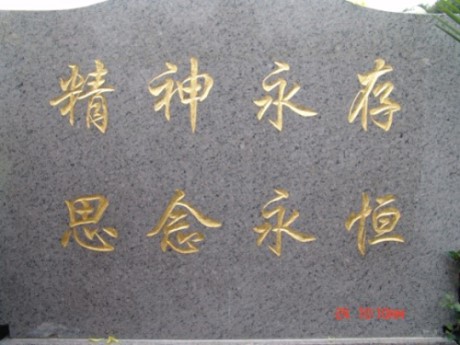 精神永存
思念永恒